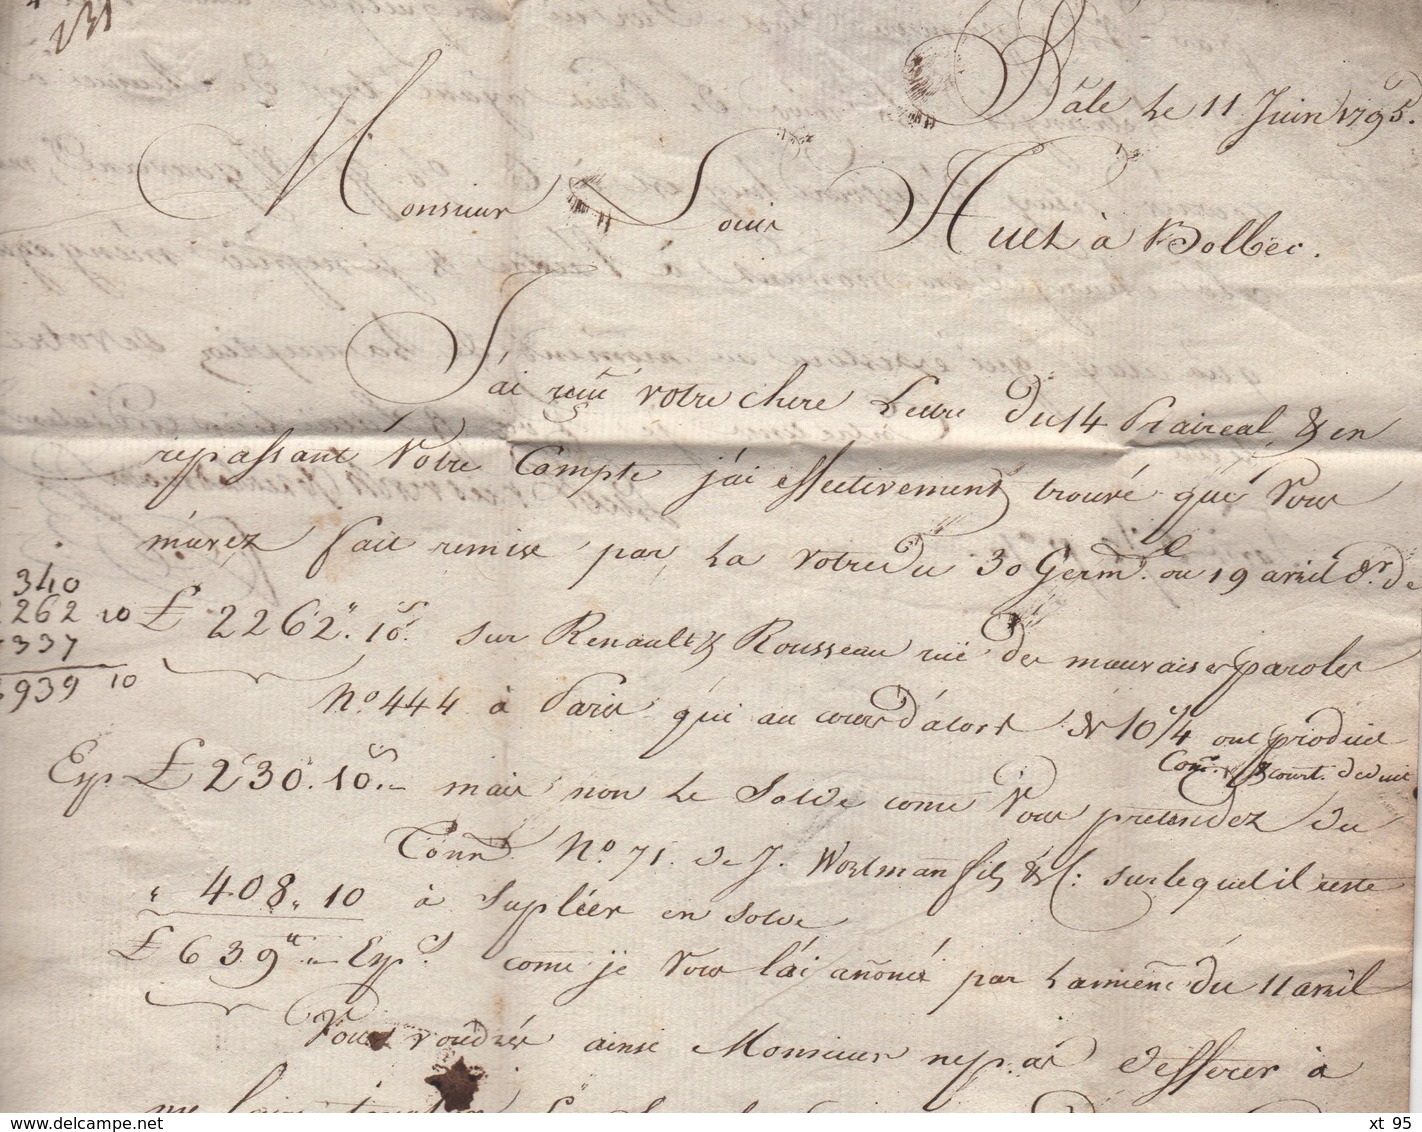 Bâle Le 11 Juin 1795.
Monsieur Louis Huet à Bolbec.
J'ai recu votre chere Lettre du 14 Praireal & en
repassant Votre Compte j'ai effectivement trouvé que Vous
m'avez fait remise par La votre du 30 Germ.l ou 19 avril dr. de
£ 2262.10s. sur Renault & Rousseau rue des mauvaises paroles
340
262 10
337
939 10
No. 444 à Paris qui au cours d'alors de 10 1/4 ont produit
Con. & court. deduit
Esp £ 230.10s.- mais non Le Solde come Vous pretendez du
Conn No. 71. de J. Wortmann fils & C: sur lequel il reste
" 408 " 10 à Supléer en solde
£ 639 " - Esp.s come je Vous l'ai añoncé par La mienne du 11 avril
Vous voudrés ainsi Monsieur ne pas differer à
me faire
www.delcampe.net
xt_95